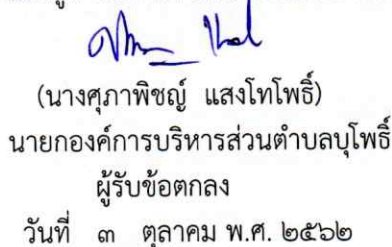 (นางศุภาพิชญ์ แสงโทโพธิ์)
นายกองค์การบริหารส่วนตำบลบุโพธิ์
ผู้รับข้อตกลง
วันที่ ๓ ตุลาคม พ.ศ. ๒๕๖๒